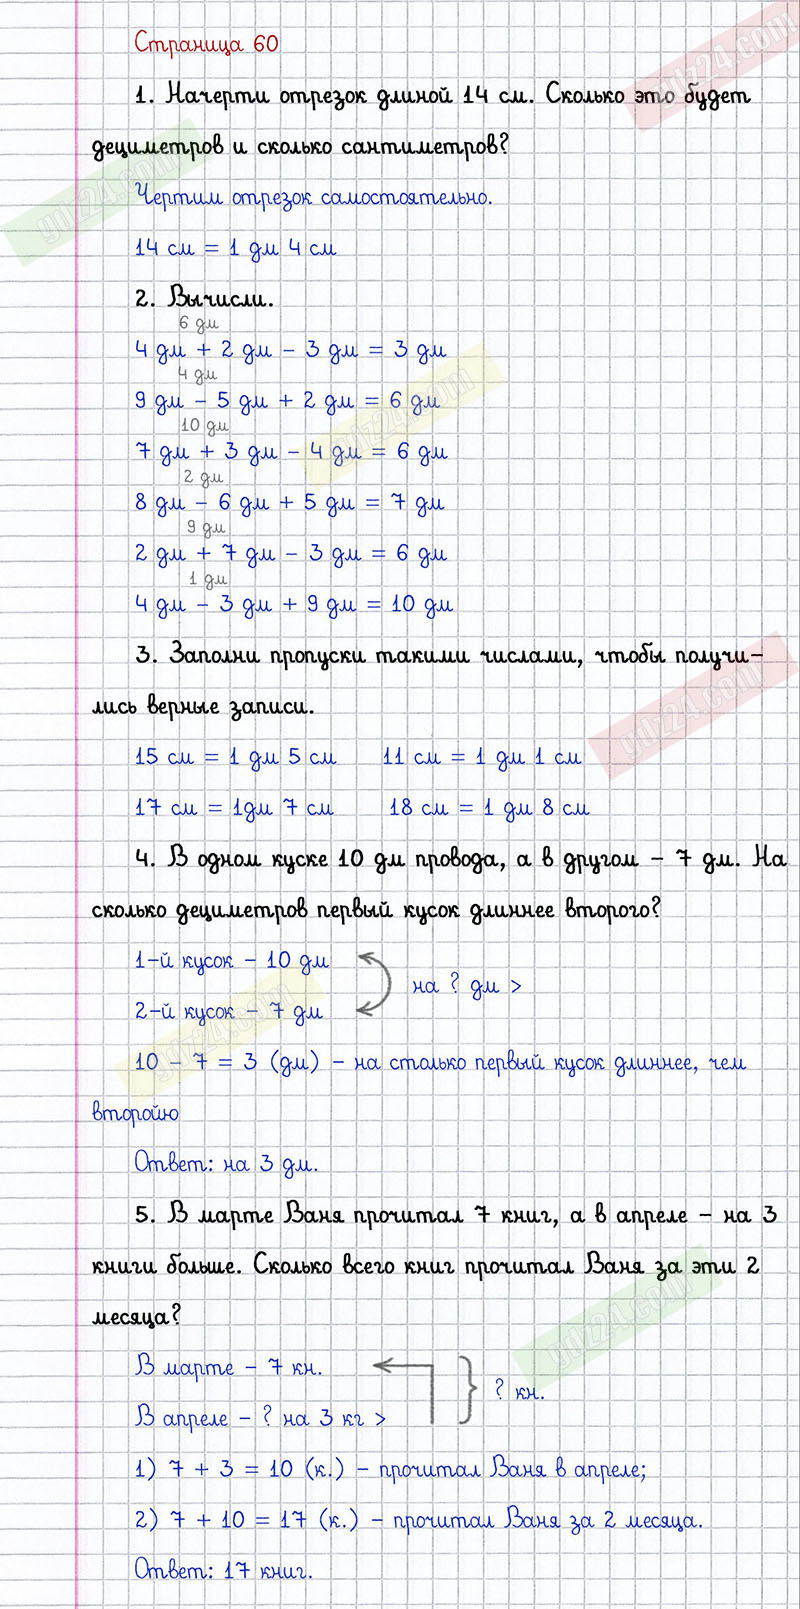 Страница 60
1. Начерти отрезок длиной 14 см. Сколько это будет
дециметров и сколько сантиметров?
Чертим отрезок самостоятельно.
14 см = 1 дм 4 см
2. Вычисли.
6 дм
4 дм + 2 дм - 3 дм = 3 дм
4 дм
9 дм - 5 дм + 2 дм = 6 дм
10 дм
7 дм + 3 дм - 4 дм = 6 дм
2 дм
8 дм - 6 дм + 5 дм = 7 дм
9 дм
2 дм + 7 дм - 3 дм = 6 дм
1 дм
4 дм - 3 дм + 9 дм = 10 дм
3. Заполни пропуски такими числами, чтобы получи-
лись верные записи.
15 см = 1 дм 5 см 11 см = 1 дм 1 см
17 см = 1дм 7 см 18 см = 1 дм 8 см
4. В одном куске 10 дм провода, а в другом - 7 дм. На
сколько дециметров первый кусок длиннее второго?
1-й кусок - 10 дм
на ? дм >
2-й кусок - 7 дм
10 - 7 = 3 (дм) - на столько первый кусок длиннее, чем
второйю
Ответ: на 3 дм.
5. В марте Ваня прочитал 7 книг, а в апреле - на 3
книги больше. Сколько всего книг прочитал Ваня за эти 2
месяца?
В марте - 7 кн.
? кн.
В апреле - ? на 3 кг >
1) 7 + 3 = 10 (к.) - прочитал Ваня в апреле;
2) 7 + 10 = 17 (к.) - прочитал Ваня за 2 месяца.
Ответ: 17 книг.
gdz24.com
gdz24.com
gdz24.com
gdz24.com
gdz24.com
gdz24.com